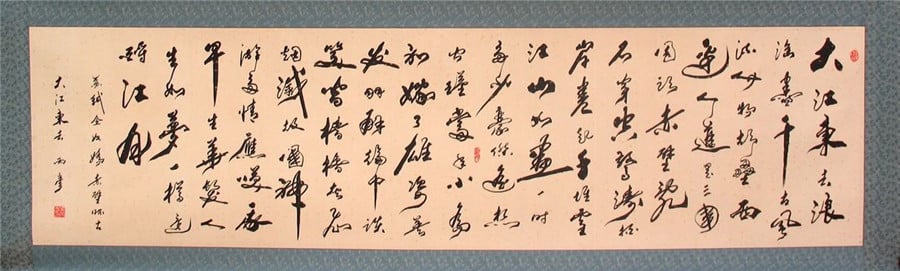 大江東去浪
淘盡千古風
流人物故壘西
邊人道是三國
周郎赤壁亂
石穿空驚濤拍
岸卷起千堆雪
江山如畫一時
多少豪傑遙想
公瑾當年小喬
初嫁了雄姿英
发羽扇綸巾談
笑間檣櫓灰飛
烟滅故國神
游多情應笑我
早生華髮人
生如夢一樽還
酹江月
蘇軾念奴嬌赤壁怀古
大江東去